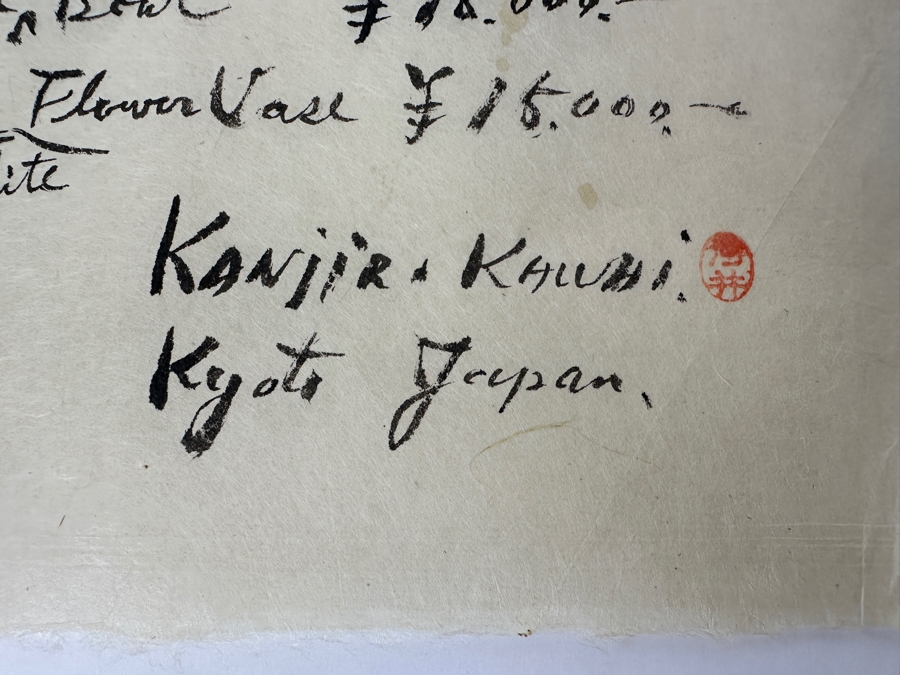 Bowl ¥ 18.000.-
Flower Vase ¥ 15.000.-
ite
KANJIR. KAWAI.
Kyoto Japan.